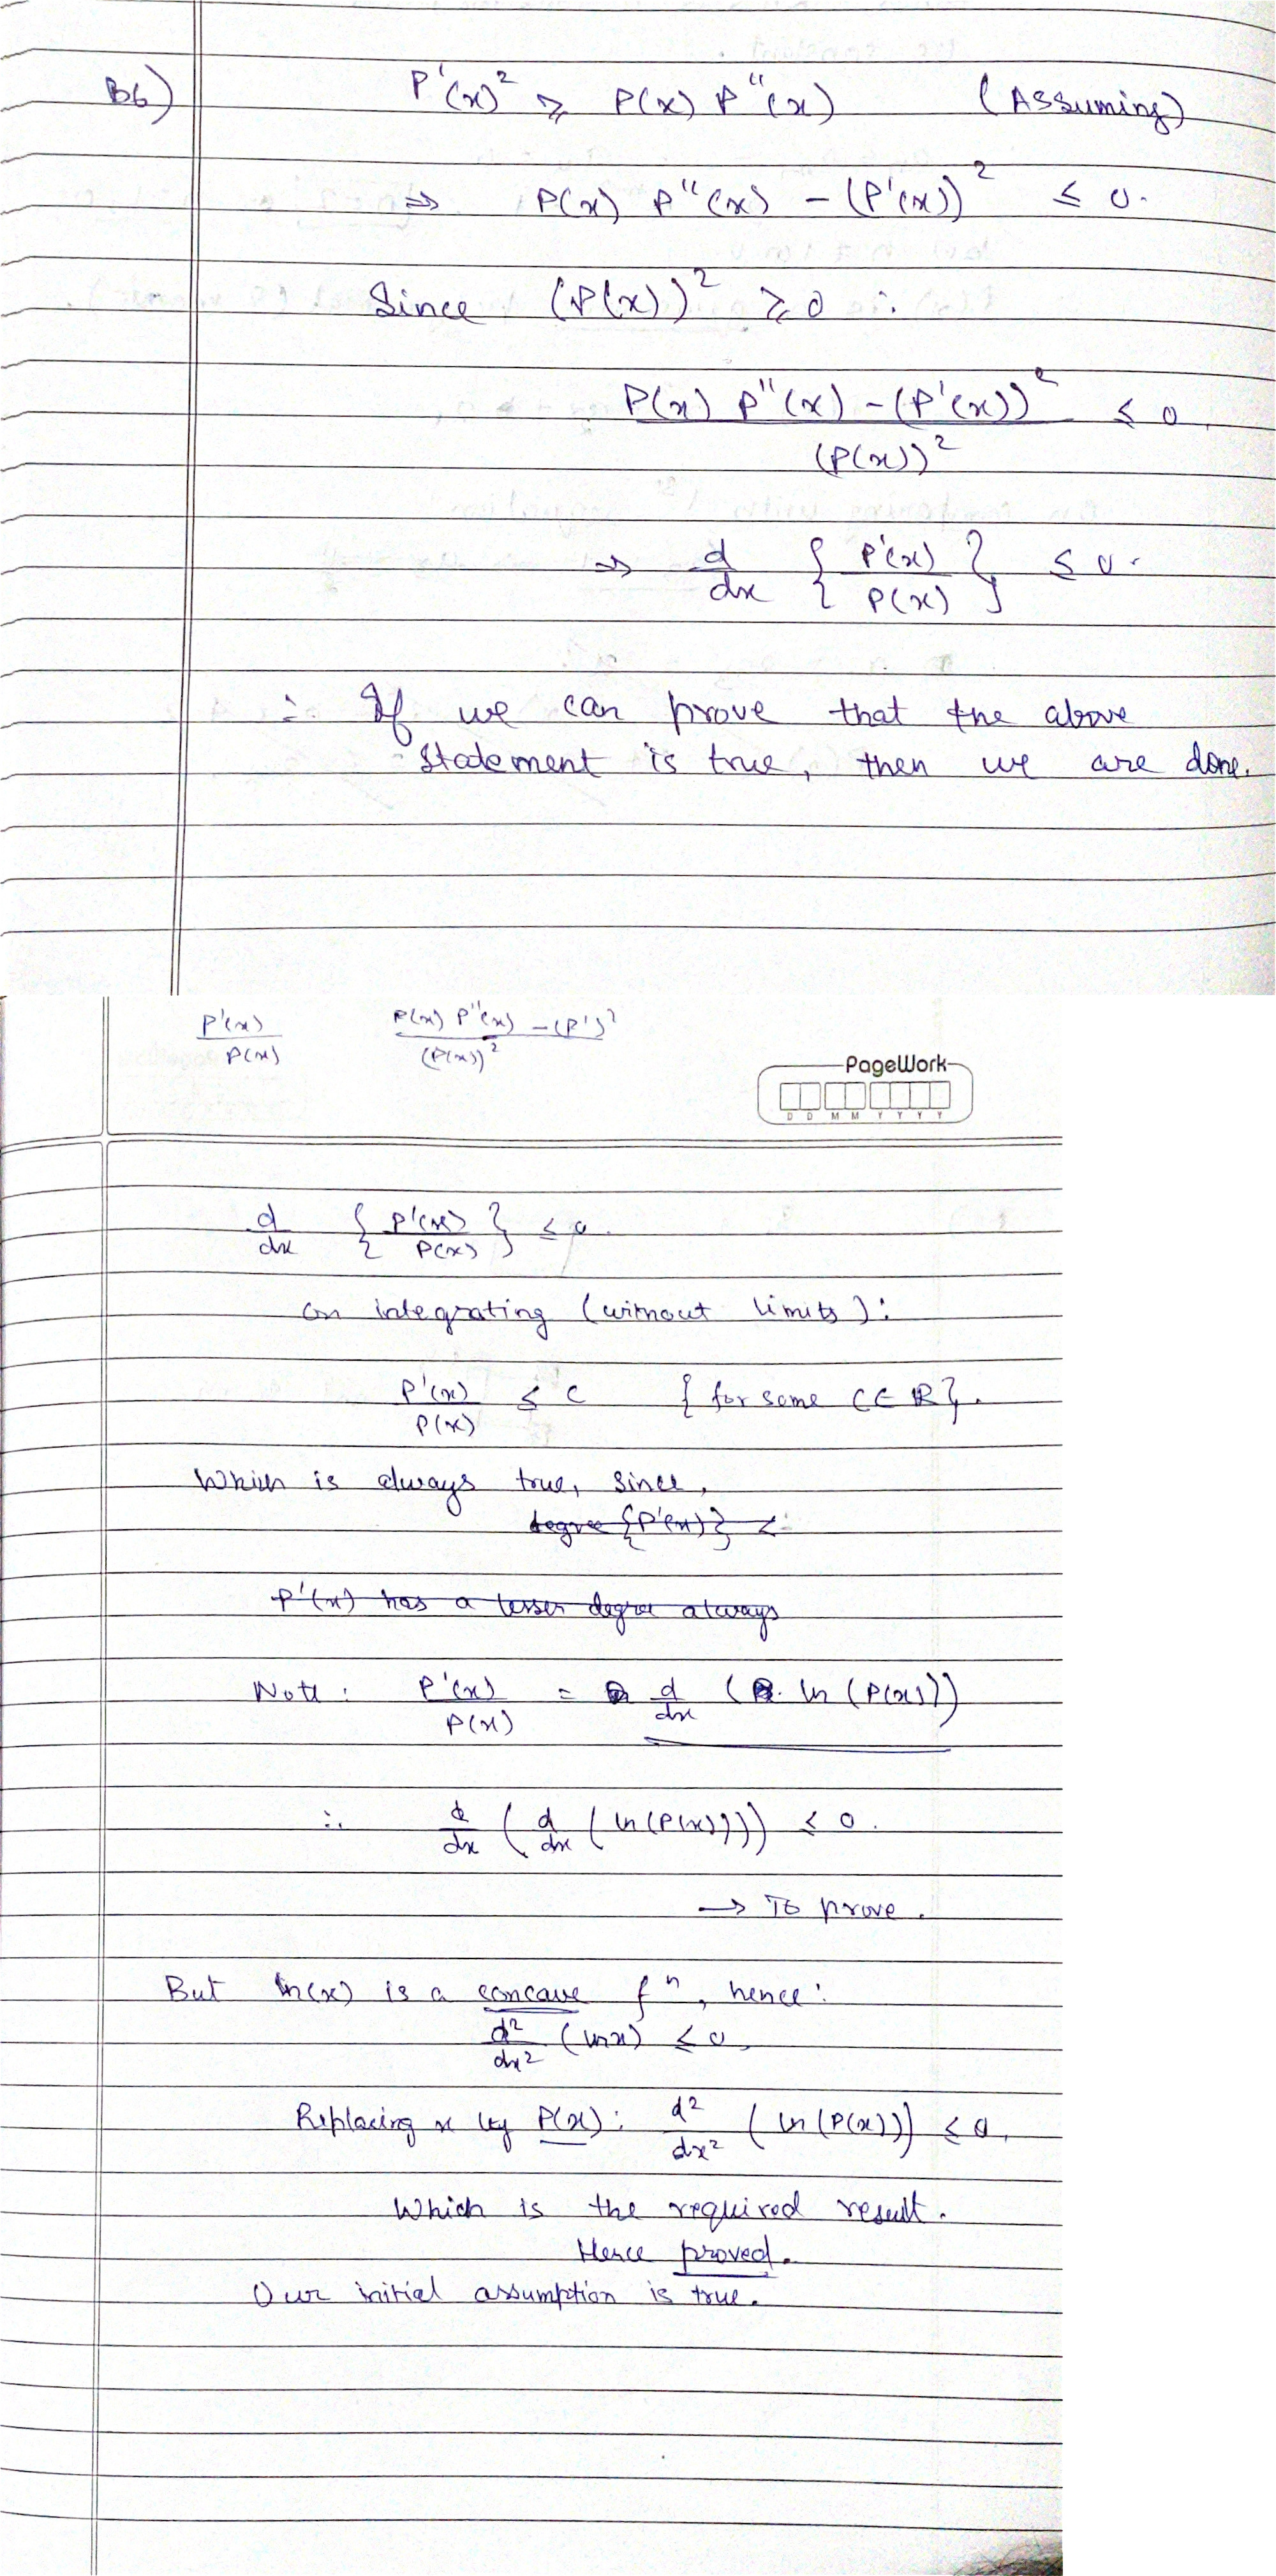 B6) P'(x)² ≥ P(x) P''(x) (Assuming)
⇒ P(x) P''(x) - (P'(x))² ≤ 0.
Since (P(x))² ≥ 0 ∴
P(x) P''(x) - (P'(x))² / (P(x))² ≤ 0
⇒ d/dx { P'(x) / P(x) } ≤ 0.
∴ If we can prove that the above
statement is true, then we are done.
P'(x) / P(x) P(x) P''(x) - (P')² / (P(x))²
PageWork
D D M M Y Y Y Y
d/dx { P'(x) / P(x) } ≤ 0.
On integrating (without limits):
P'(x) / P(x) ≤ c {for some C ∈ R}.
Which is always true, since,
degree {P'(x)} <
P'(x) has a lesser degree always
Note: P'(x) / P(x) = d/dx (ln (P(x)))
∴ d/dx ( d/dx ( ln (P(x)))) ≤ 0.
→ To prove.
But ln(x) is a concave fⁿ, hence:
d²/dx² (ln x) ≤ 0,
Replacing x by P(x): d²/dx² ( ln (P(x))) ≤ 0,
Which is the required result.
Hence proved.
Our initial assumption is true.